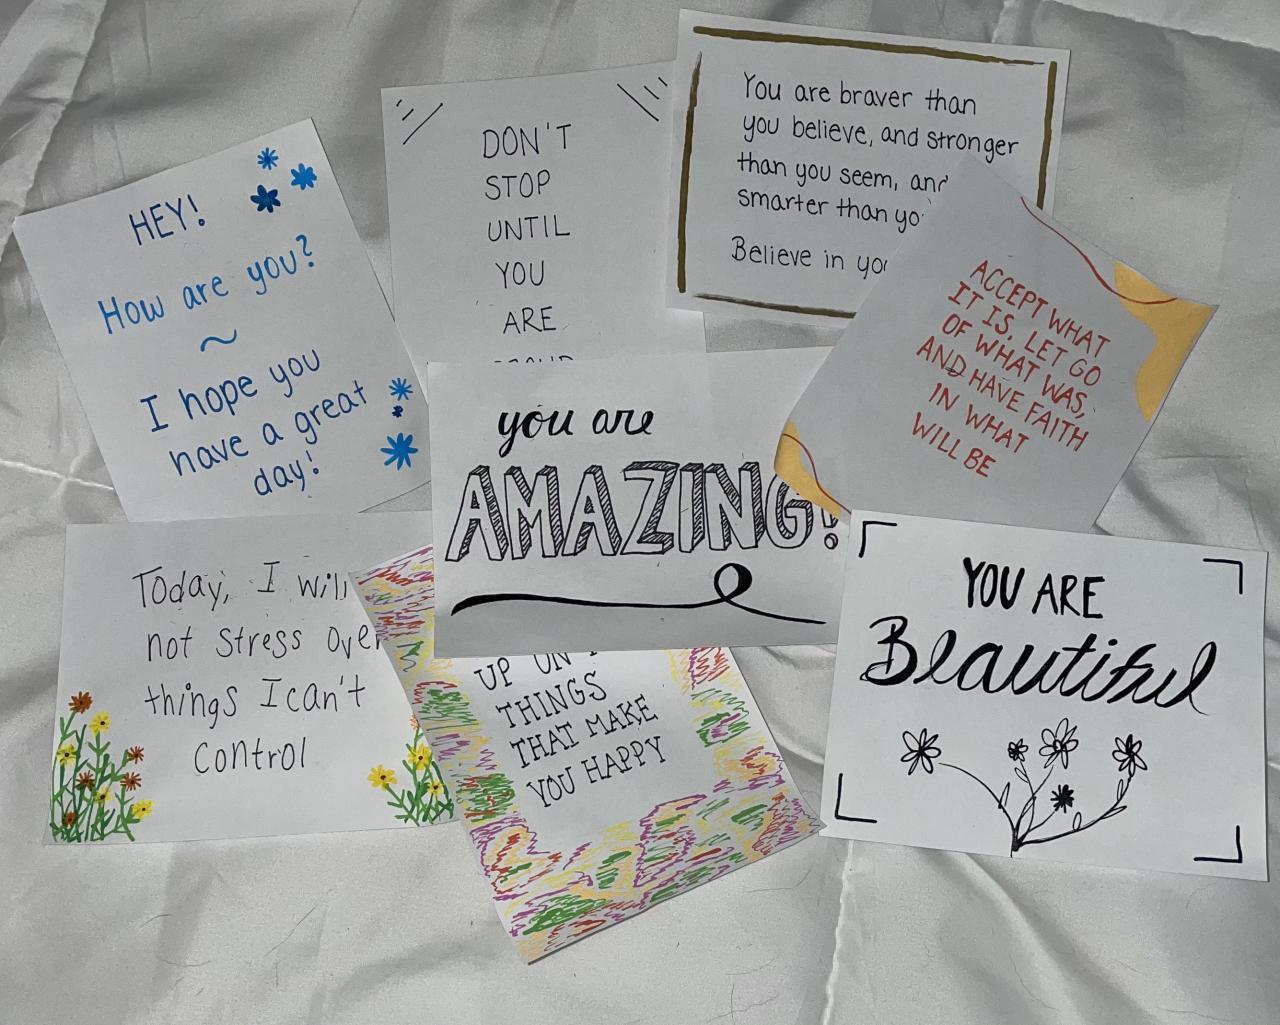 HEY!
How are you?
~
I hope you
have a great
day!
DON'T
STOP
UNTIL
YOU
ARE
You are braver than
you believe, and stronger
than you seem, and
smarter than
Believe in
ACCEPT WHAT
IT IS, LET GO
OF WHAT WAS,
AND HAVE FAITH
IN WHAT
WILL BE
you are
AMAZING!
Today, I will
not stress over
things I can't
control
UP ON
THINGS
THAT MAKE
YOU HAPPY
YOU ARE
Beautiful